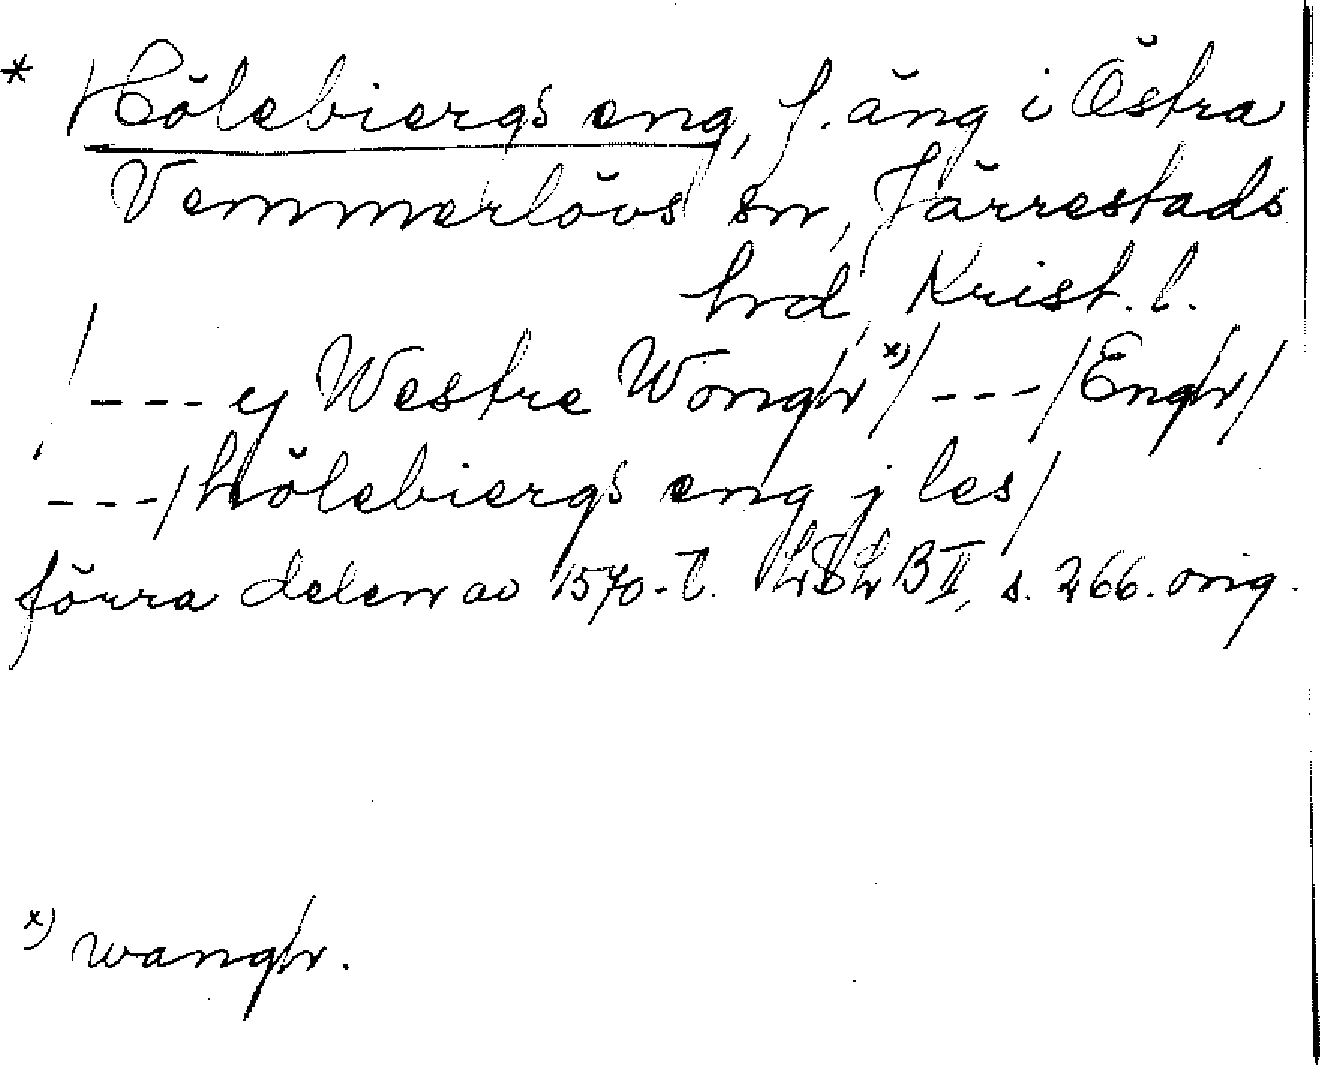 * Hölebiergs eng, f. äng i Östra
Vemmerlövs sn, Järrestads
hrd, Krist. l.
/ --- ej Westre Wongh x) / --- / Engh /
--- / Hölebiergs eng j les /
förra delen av 1570-t. LSL B II, s. 266. orig.
x) wangh.